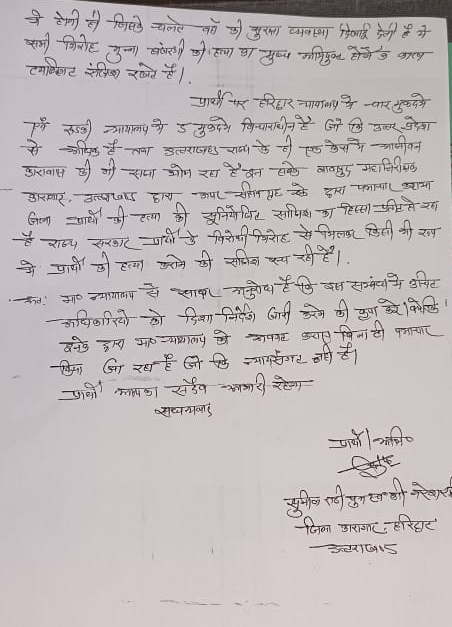 जो होगी ही जिसके चलते की सुरक्षा व्यवस्था दिखाई देती है ये
सभी गिरोह मुन्ना बजरंगी की हत्या का मुख्य अभियुक्त होने के कारण
रखते हैं।
प्रार्थी पर हरिद्वार न्यायालय में चार मुकदमे
एवं रुड़की न्यायालय में 5 मुकदमे विचाराधीन है जो कि उत्तर प्रदेश
से अधिक है तथा उत्तराखण्ड राज्य के ही एक केस में आजीवन
कारावास की भी सजा भोग रहा है इन सबके बावजूद महानिरीक्षक
कारागार, उत्तराखण्ड द्वारा के द्वारा पत्राचार कराया
जाना प्रार्थी की हत्या की सुनियोजित साजिश का हिस्सा
है राज्य सरकार प्रार्थी के विरोधी गिरोह से मिलकर किसी भी रूप
में प्रार्थी की हत्या कराने की साजिश रच रही है।
अतः मा० न्यायालय से सादर अनुरोध है कि इस सम्बंध में उचित
अधिकारियो को दिशा निर्देश जारी करने की कृपा करें। क्योंकि
इनके द्वारा मा० न्यायालय को अवगत कराए बिना ही पत्राचार
किया जा रहा है जो कि न्यायसंगत नही है।
प्रार्थी आपका सदैव आभारी रहेगा
सधन्यवाद
प्रार्थी/अभि०
सुनील राठी पुत्र स्व० श्री नरेश
जिला कारागार, हरिद्वार
उत्तराखण्ड